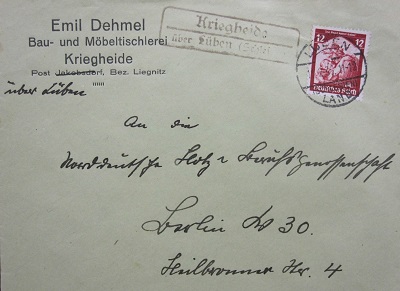 Emil Dehmel
Bau- und Möbeltischlerei
Kriegheide
Post Jakobsdorf, Bez. Liegnitz
über Lüben
Kriegheide
über Lüben (Schles)
LÜBEN
LAND
12 12
Deutsches Reich
An die
Norddeutsche Holz = Berufsgenossenschaft
Berlin W 30.
Heilbronner Str. 4